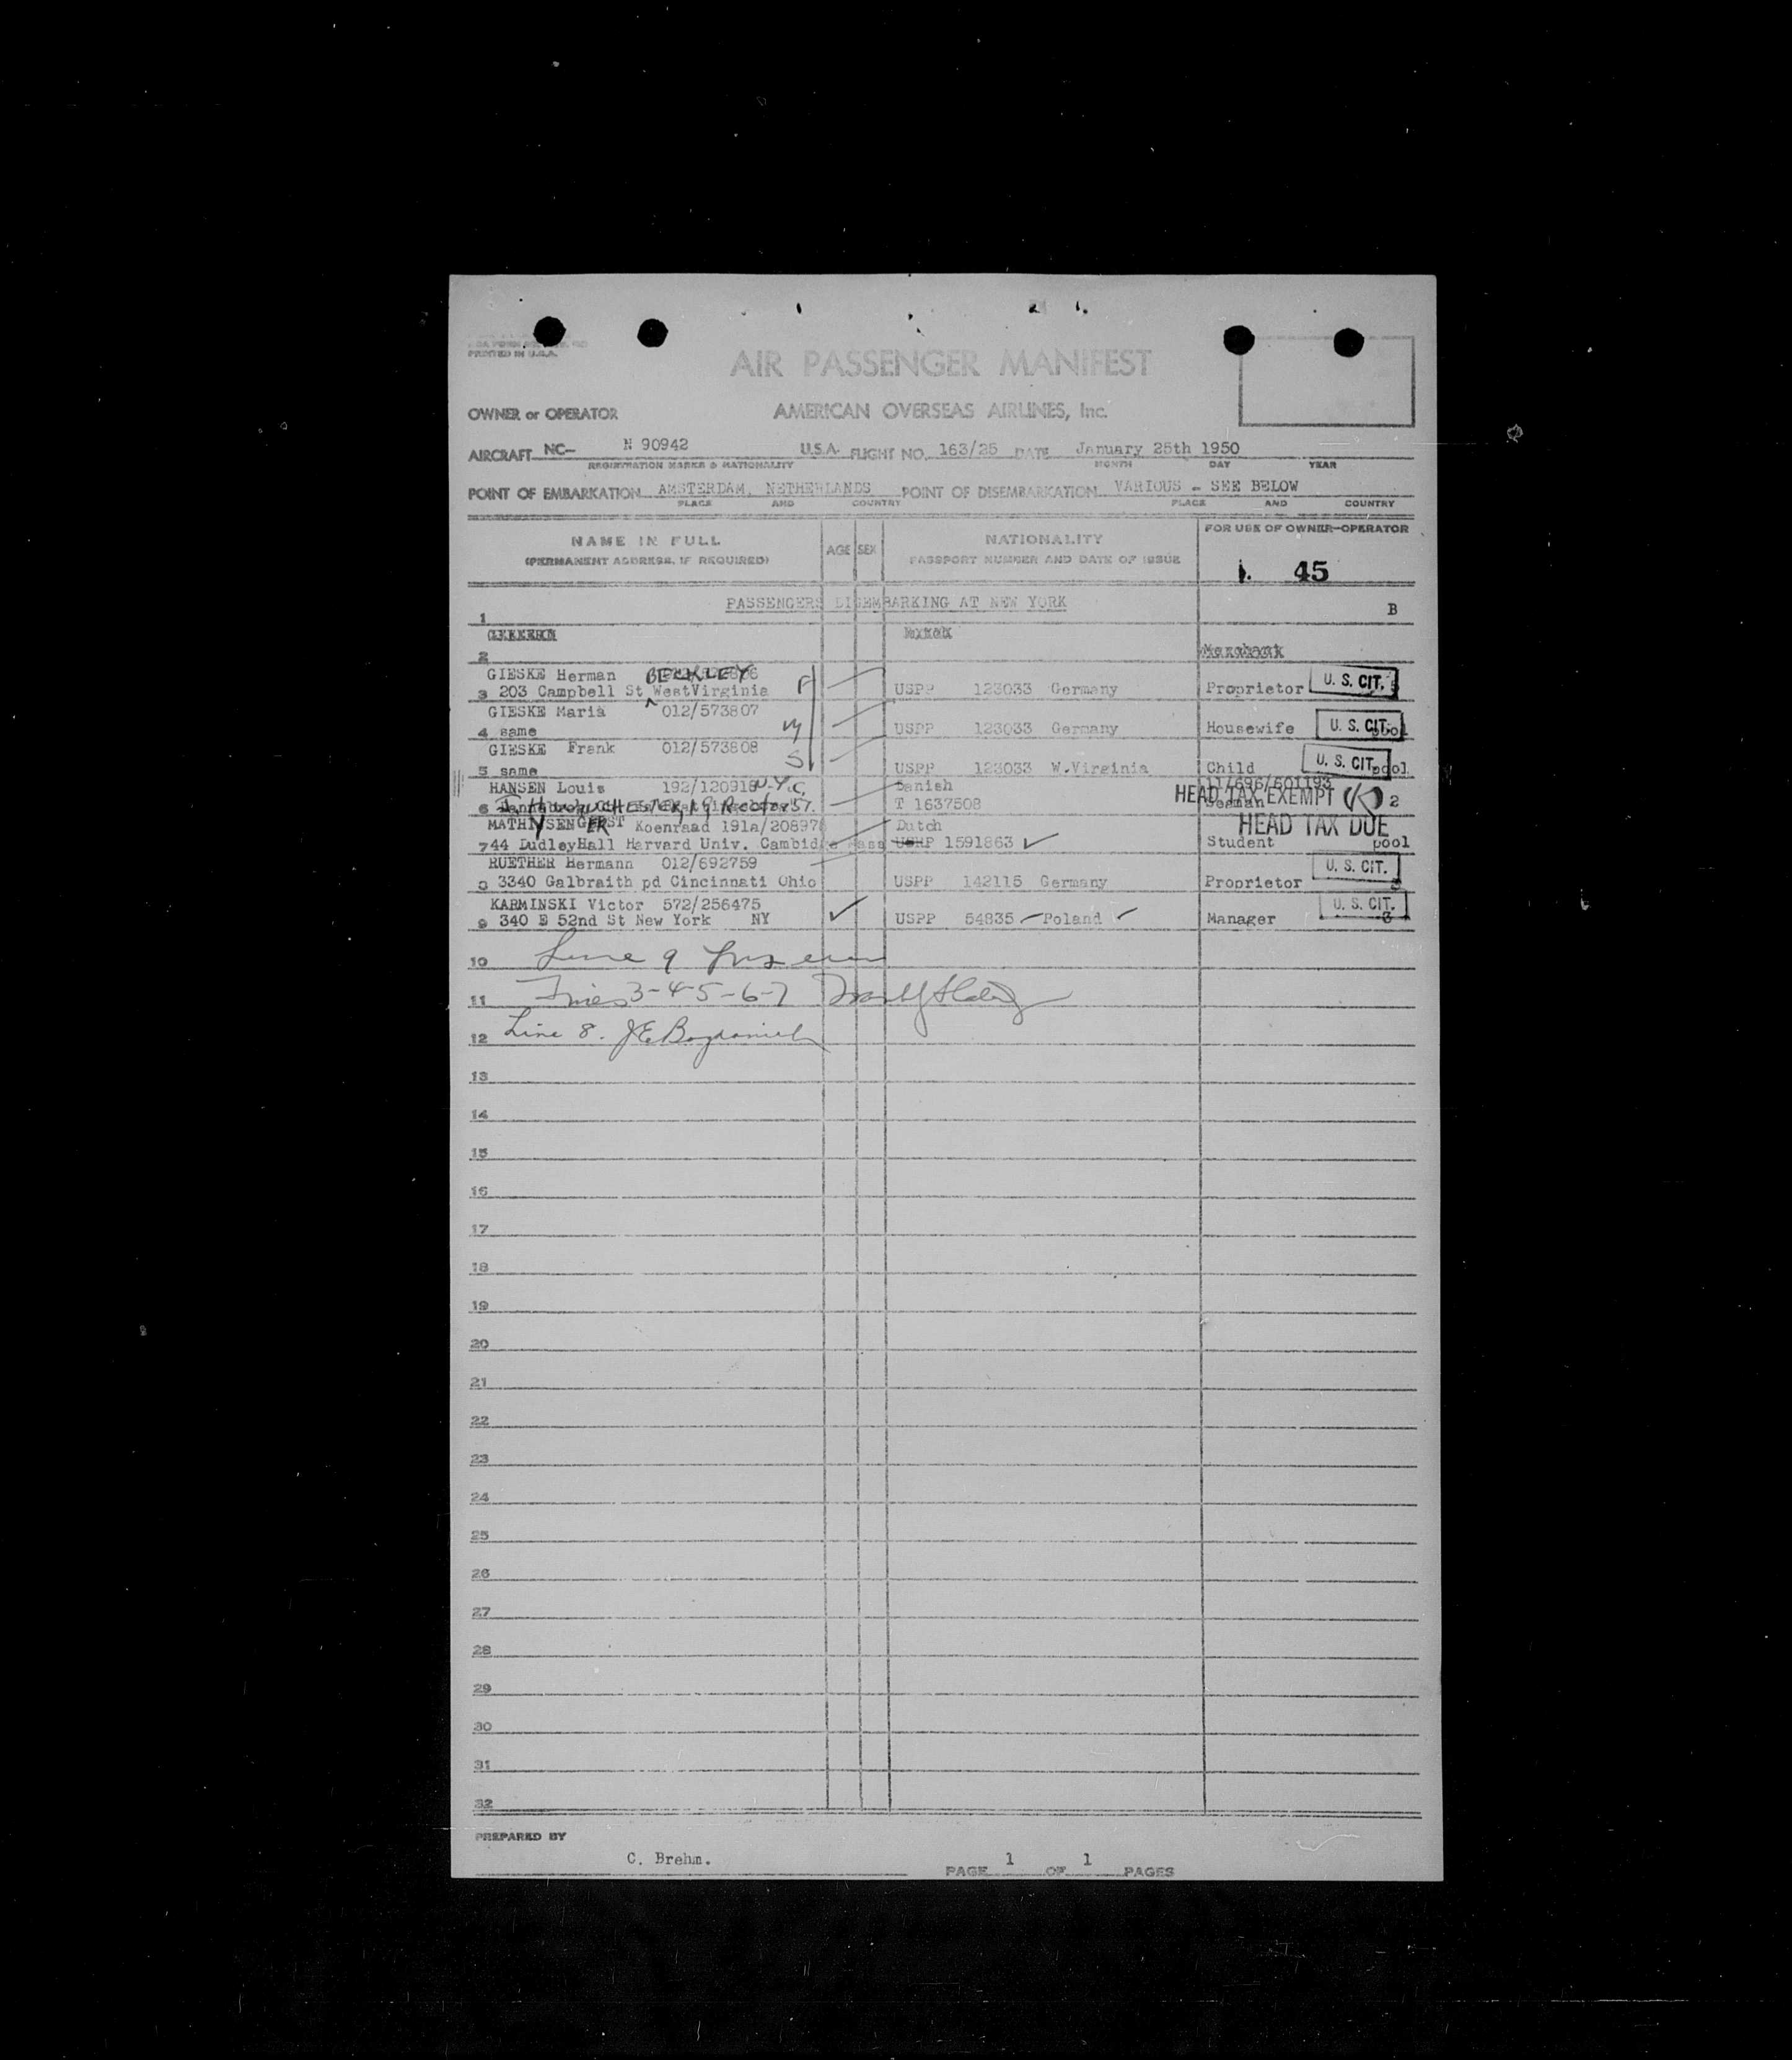 PRINTED IN U.S.A.
AIR PASSENGER MANIFEST
OWNER or OPERATOR AMERICAN OVERSEAS AIRLINES, Inc.
AIRCRAFT NC- N 90942 U.S.A. FLIGHT NO. 163/25 DATE January 25th 1950
REGISTRATION MARKS & NATIONALITY MONTH DAY YEAR
POINT OF EMBARKATION AMSTERDAM, NETHERLANDS POINT OF DISEMBARKATION VARIOUS - SEE BELOW
PLACE AND COUNTRY PLACE AND COUNTRY
NAME IN FULL AGE SEX NATIONALITY FOR USE OF OWNER-OPERATOR
(PERMANENT ADDRESS, IF REQUIRED) PASSPORT NUMBER AND DATE OF ISSUE
45
PASSENGERS DISEMBARKING AT NEW YORK B
1
2
GIESKE Herman BECKLEY
3 203 Campbell St WestVirginia F USPP 123033 Germany Proprietor U. S. CIT.
GIESKE Maria 012/573807
4 same M USPP 123033 Germany Housewife U. S. CIT.
GIESKE Frank 012/573808
5 same S USPP 123033 W.Virginia Child U. S. CIT. pool
HANSEN Louis 192/120918 N.Y.C. Danish 11/696/601193
6 19 Rector ST. T 1637508 Seaman HEAD TAX EXEMPT 2
MATHYSEN GERST Koenraad 191a/20897 Dutch HEAD TAX DUE
7 44 DudleyHall Harvard Univ. Cambidge Mass USPP 1591863 Student pool
RUETHER Hermann 012/692759
8 3340 Galbraith pd Cincinnati Ohio USPP 142115 Germany Proprietor U. S. CIT.
KARMINSKI Victor 572/256475
9 340 E 52nd St New York NY USPP 54835 Poland Manager U. S. CIT. 3
10 Line 9
11 Lines 3-4-5-6-7
12 Line 8.
13
14
15
16
17
18
19
20
21
22
23
24
25
26
27
28
29
30
31
32
PREPARED BY
C. Brehm.
PAGE 1 OF 1 PAGES